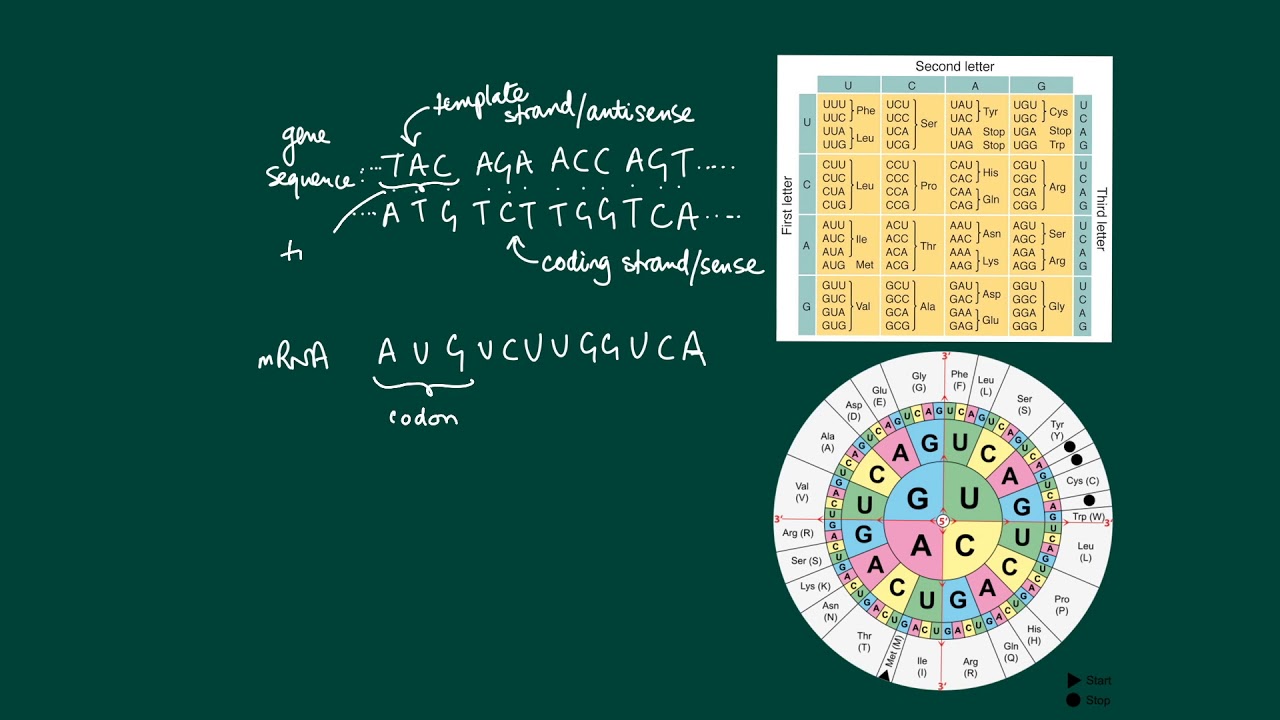 template
strand/antisense
gene
sequence: ... TAC AGA ACC AGT .....
.... A T G T C T T G G T C A .....
coding strand/sense
mRNA A U G U C U U G G U C A
codon
Second letter
U C A G
First letter
Third letter
U
UUU UUC Phe
UUA UUG Leu
UCU UCC UCA UCG Ser
UAU UAC Tyr
UAA Stop
UAG Stop
UGU UGC Cys
UGA Stop
UGG Trp
U C A G
C
CUU CUC CUA CUG Leu
CCU CCC CCA CCG Pro
CAU CAC His
CAA CAG Gln
CGU CGC CGA CGG Arg
U C A G
A
AUU AUC AUA Ile
AUG Met
ACU ACC ACA ACG Thr
AAU AAC Asn
AAA AAG Lys
AGU AGC Ser
AGA AGG Arg
U C A G
G
GUU GUC GUA GUG Val
GCU GCC GCA GCG Ala
GAU GAC Asp
GAA GAG Glu
GGU GGC GGA GGG Gly
U C A G
3'
Gly (G)
Phe (F)
Leu (L)
Ser (S)
Tyr (Y)
Cys (C)
Trp (W)
3'
Leu (L)
Pro (P)
His (H)
Gln (Q)
Arg (R)
3'
Ile (I)
Met (M)
Thr (T)
Asn (N)
Lys (K)
Ser (S)
Arg (R)
3'
Val (V)
Ala (A)
Asp (D)
Glu (E)
G U
A C
5'
U C A G
U C A G
U C A G
U C A G
Start
Stop